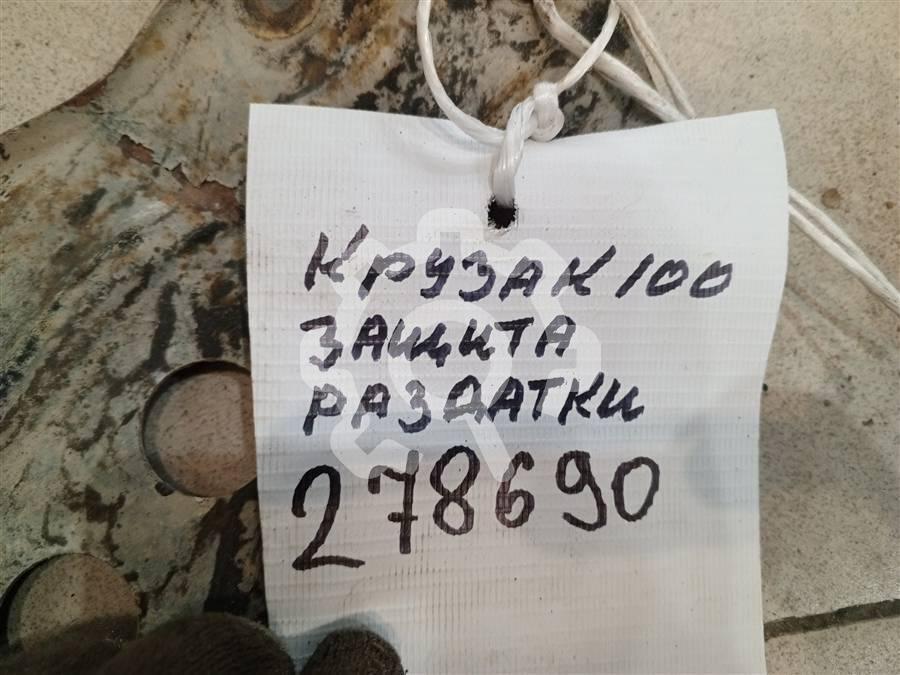 КРУЗАК 100
ЗАЩИТА
РАЗДАТКИ
278690